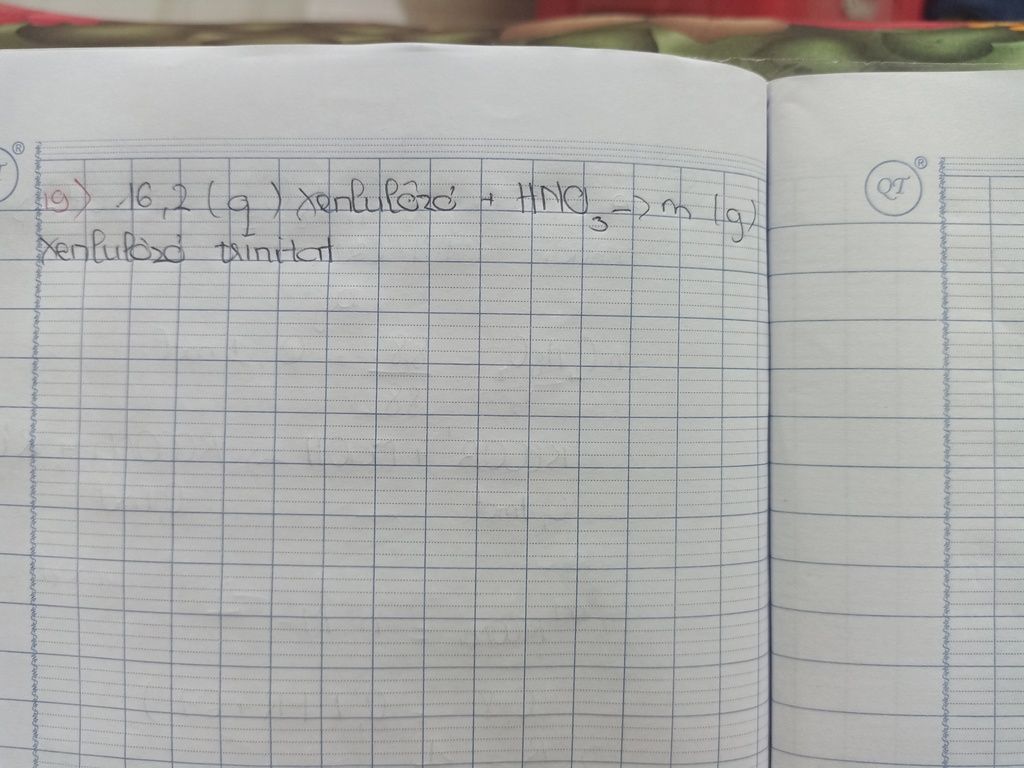 19) 16,2 (g) xenlulôzơ + HNO3 -> m (g)
xenlulôzơ trinitrat
QT ®